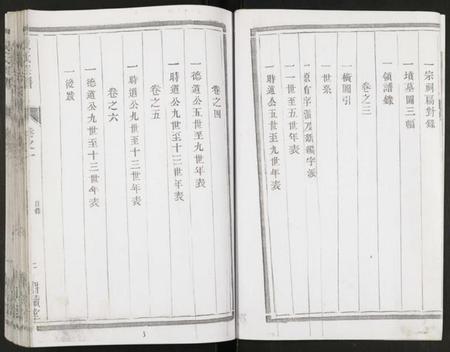 一宗祠匾對錄
一墳墓圖三幅
一領譜錄
卷之三
一橫圖引
一世系
一原有字派及新編字派
一一世至五世年表
一時道公五世至九世年表
卷之四
一德道公五世至九世年表
一時道公九世至十三世年表
卷之五
一時道公九世至十三世年表
卷之六
一德道公九世至十三世年表
一後跋
卷之一
目錄